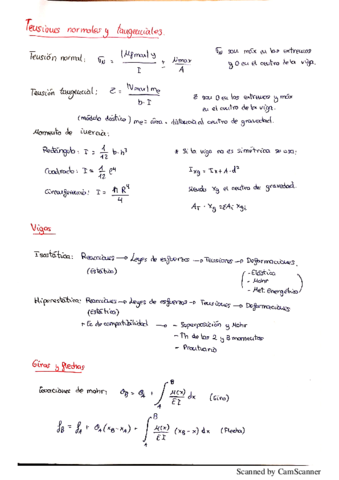 Tensiones normales y tangenciales.
Tensión normal: σ_N = |Mfmax| y / I ± Nmax / A
σ_N son máx en los extremos y 0 en el centro de la viga.
Tensión tangencial: τ = Vmax me / b · I
τ son 0 en los extremos y máx en el centro de la viga.
(módulo estático) me = área · distancia al centro de gravedad.
Momento de inercia:
Rectángulo: I = 1/12 b · h³
Cuadrado: I = 1/12 l⁴
Circunferencia: I = π R⁴ / 4
* Si la viga no es simétrica se usa:
I_xg = I_x + A · d²
siendo xg el centro de gravedad.
A_T · x_g = Σ A_i x_gi
Vigas
Isostática: Reacciones → Leyes de esfuerzos → Tensiones → Deformaciones.
(Estática)
- Elástica
- Mohr
- Met. Energético
Hiperestática: Reacciones → Leyes de esfuerzos → Tensiones → Deformaciones
(Estática)
+ Ec de compatibilidad → - Superposición y Mohr
- Th de los 2 y 3 momentos
- Prontuario
Giros y flechas
Ecuaciones de mohr: θ_B = θ_A + ∫_A^B M(x)/EI dx (Giro)
f_B = f_A + θ_A (x_B - x_A) + ∫_A^B M(x)/EI (x_B - x) dx (Flecha)
Scanned by CamScanner